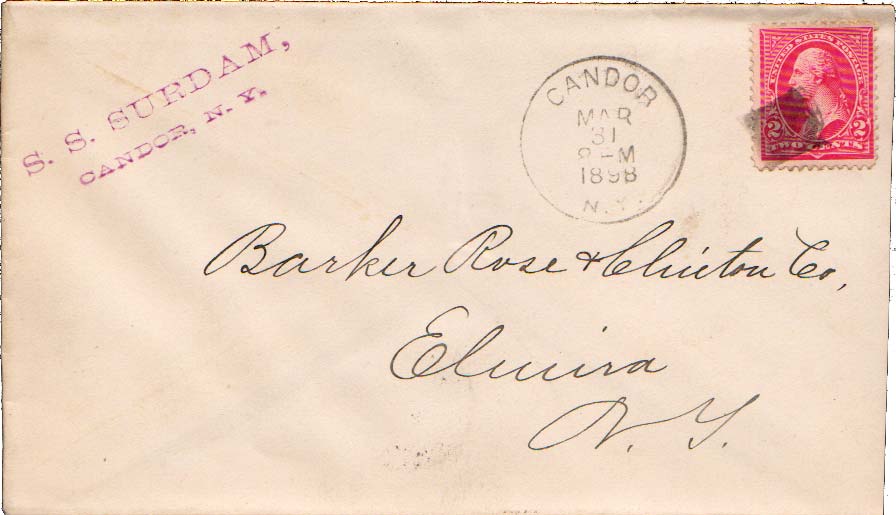 S. S. SURDAM,
CANDOR, N. Y.
CANDOR
MAR
31
1898
N. Y.
UNITED STATES POSTAGE
2 2
TWO CENTS
Barker Rose & Clinton Co,
Elmira
N. Y.